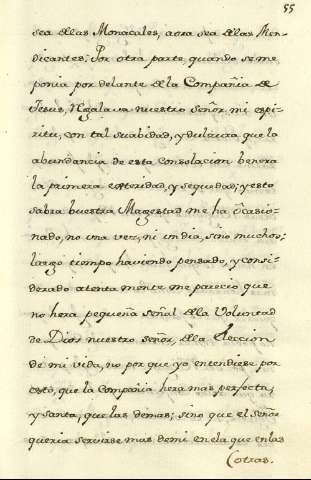 55
sea ellas Monacales, aora sea ellas Men-
dicantes; Por otra parte, quando se me
ponia por delante ella Compañia de
Jesus, Regalava nuestro señor mi espi-
ritu, con tal suabidad, y dulzura que la
abundancia de esta consolacion benera
la primera esteridad, y sequedad; y esto
sabra buestra Magestad me ha ocasio-
nado, no una vez, ni un dia, sino muchos;
largo tiempo haviendo pensado, y consi-
derado atenta mente me parecio que
no hera pequeña señal ella Voluntad
de Dios nuestro señor, ella Eleccion
de mi vida, no por que yo entendiese por
esto, que la Compañia hera mas perfecta,
y santa, que las demas; sino que el señor
queria servirse mas de mi en ela que en las
otras.